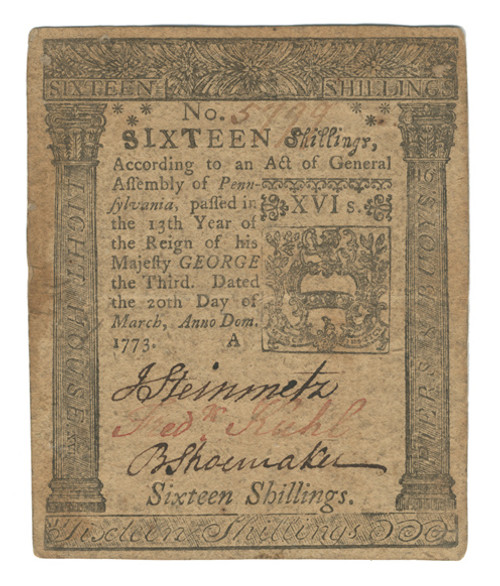 SIXTEEN SHILLINGS
No. 5799
SIXTEEN Shillings,
According to an Act of General
Aſſembly of Penn-
ſylvania, paſſed in
the 13th Year of
the Reign of his
Majeſty GEORGE
the Third. Dated
the 20th Day of
March, Anno Dom.
1773. A
XVI s.
LIGHT HOUSE
XVI
16
PIERS & BUOYS
J Steinmetz
Fedk Kuhl
B Shoemaker
Sixteen Shillings.
Sixteen Shillings